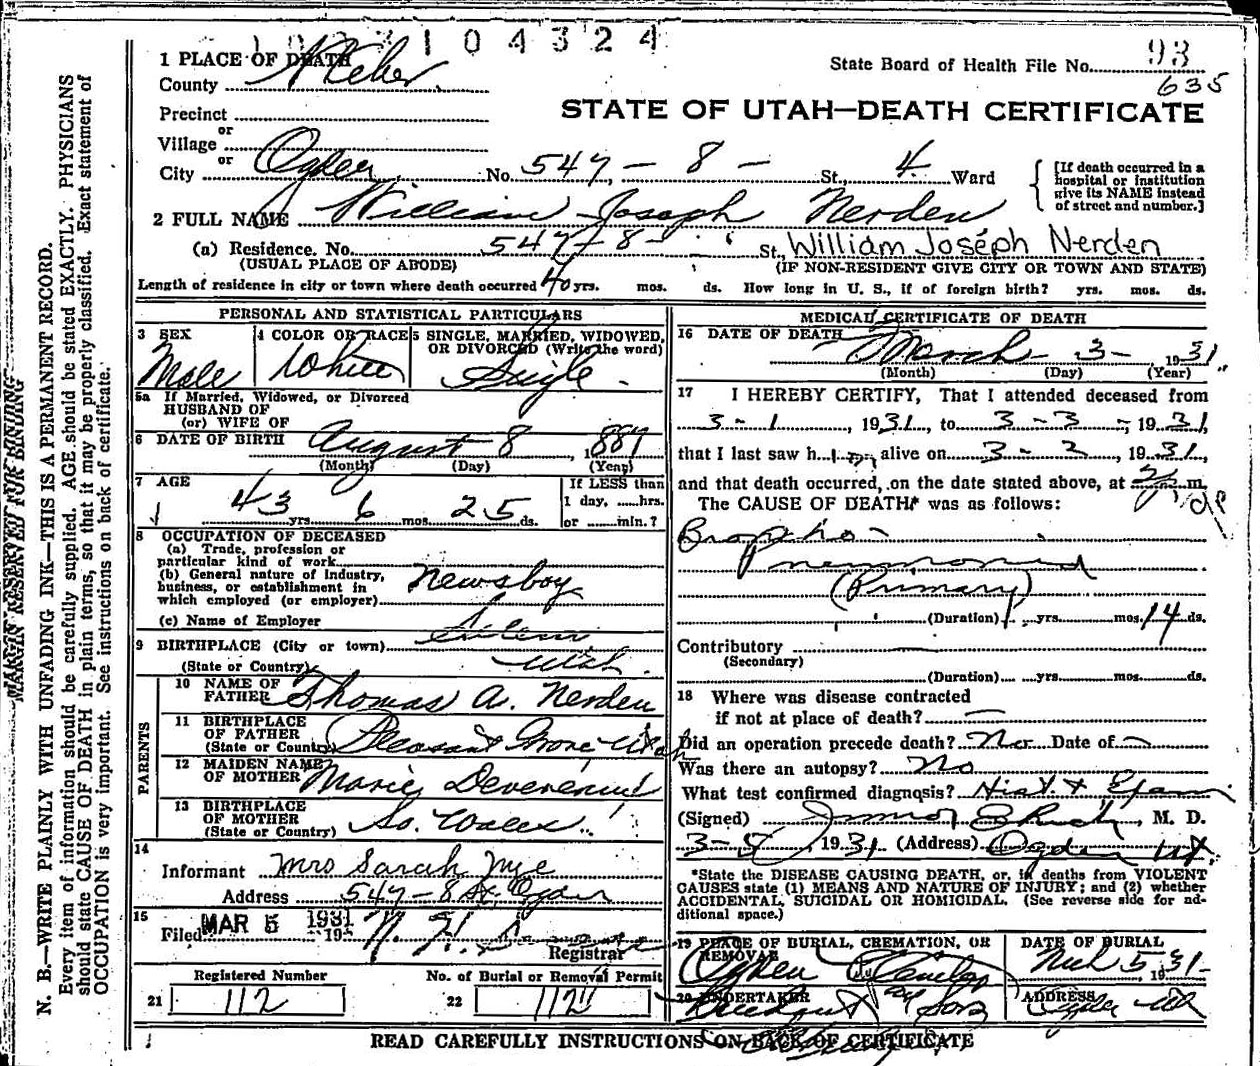 1 0 4 3 2 4
1 PLACE OF DEATH
County Weber
State Board of Health File No. 93
635
STATE OF UTAH—DEATH CERTIFICATE
Precinct
or
Village
or
City Ogden No. 547 - 8 - St., 4 Ward
[If death occurred in a hospital or institution give its NAME instead of street and number.]
2 FULL NAME William Joseph Nerden
(a) Residence. No. 547 - 8 - St., William Joseph Nerden
(USUAL PLACE OF ABODE) (IF NON-RESIDENT GIVE CITY OR TOWN AND STATE)
Length of residence in city or town where death occurred 40 yrs. mos. ds. How long in U. S., if of foreign birth? yrs. mos. ds.
PERSONAL AND STATISTICAL PARTICULARS
3 SEX
Male
4 COLOR OR RACE
White
5 SINGLE, MARRIED, WIDOWED, OR DIVORCED (Write the word)
Single
5a If Married, Widowed, or Divorced
HUSBAND OF
(or) WIFE OF
6 DATE OF BIRTH August 8, 1887
(Month) (Day) (Year)
7 AGE
43 yrs. 6 mos. 25 ds.
If LESS than
1 day, ......hrs.
or ......min.?
8 OCCUPATION OF DECEASED
(a) Trade, profession or
particular kind of work
(b) General nature of industry,
business, or establishment in
which employed (or employer) Newsboy
(c) Name of Employer
9 BIRTHPLACE (City or town)
(State or Country) Utah
PARENTS
10 NAME OF FATHER Thomas A. Nerden
11 BIRTHPLACE OF FATHER (State or Country) Pleasant Grove Utah
12 MAIDEN NAME OF MOTHER Marie
13 BIRTHPLACE OF MOTHER (State or Country) So. Wales
14
Informant Mrs Sarah Nye
Address 547-8 St. Ogden
15
Filed MAR 5 1931 19
Registrar
Registered Number No. of Burial or Removal Permit
21 112 22 112
MEDICAL CERTIFICATE OF DEATH
16 DATE OF DEATH March 3- 1931.
(Month) (Day) (Year)
17 I HEREBY CERTIFY, That I attended deceased from
3-1, 1931, to 3-3-, 1931,
that I last saw him alive on 3-2, 1931,
and that death occurred, on the date stated above, at m.
The CAUSE OF DEATH* was as follows:
Broncho-
pneumonia
(Primary)
(Duration) yrs. mos. 14 ds.
Contributory
(Secondary)
(Duration) yrs. mos. ds.
18 Where was disease contracted
if not at place of death?
Did an operation precede death? No Date of
Was there an autopsy? No
What test confirmed diagnosis? Hist. & Exam
(Signed) , M. D.
3-5, 1931 (Address) Ogden Ut.
*State the DISEASE CAUSING DEATH, or, in deaths from VIOLENT
CAUSES state (1) MEANS AND NATURE OF INJURY; and (2) whether
ACCIDENTAL, SUICIDAL OR HOMICIDAL. (See reverse side for additional space.)
19 PLACE OF BURIAL, CREMATION, OR REMOVAL
Ogden
DATE OF BURIAL
Mch 5 1931
20 UNDERTAKER
& Sons
ADDRESS
Ogden Utd
READ CAREFULLY INSTRUCTIONS ON BACK OF CERTIFICATE
MARGIN RESERVED FOR BINDING
N. B.—WRITE PLAINLY WITH UNFADING INK—THIS IS A PERMANENT RECORD.
Every item of information should be carefully supplied. AGE should be stated EXACTLY. PHYSICIANS
should state CAUSE OF DEATH in plain terms, so that it may be properly classified. Exact statement of
OCCUPATION is very important. See instructions on back of certificate.